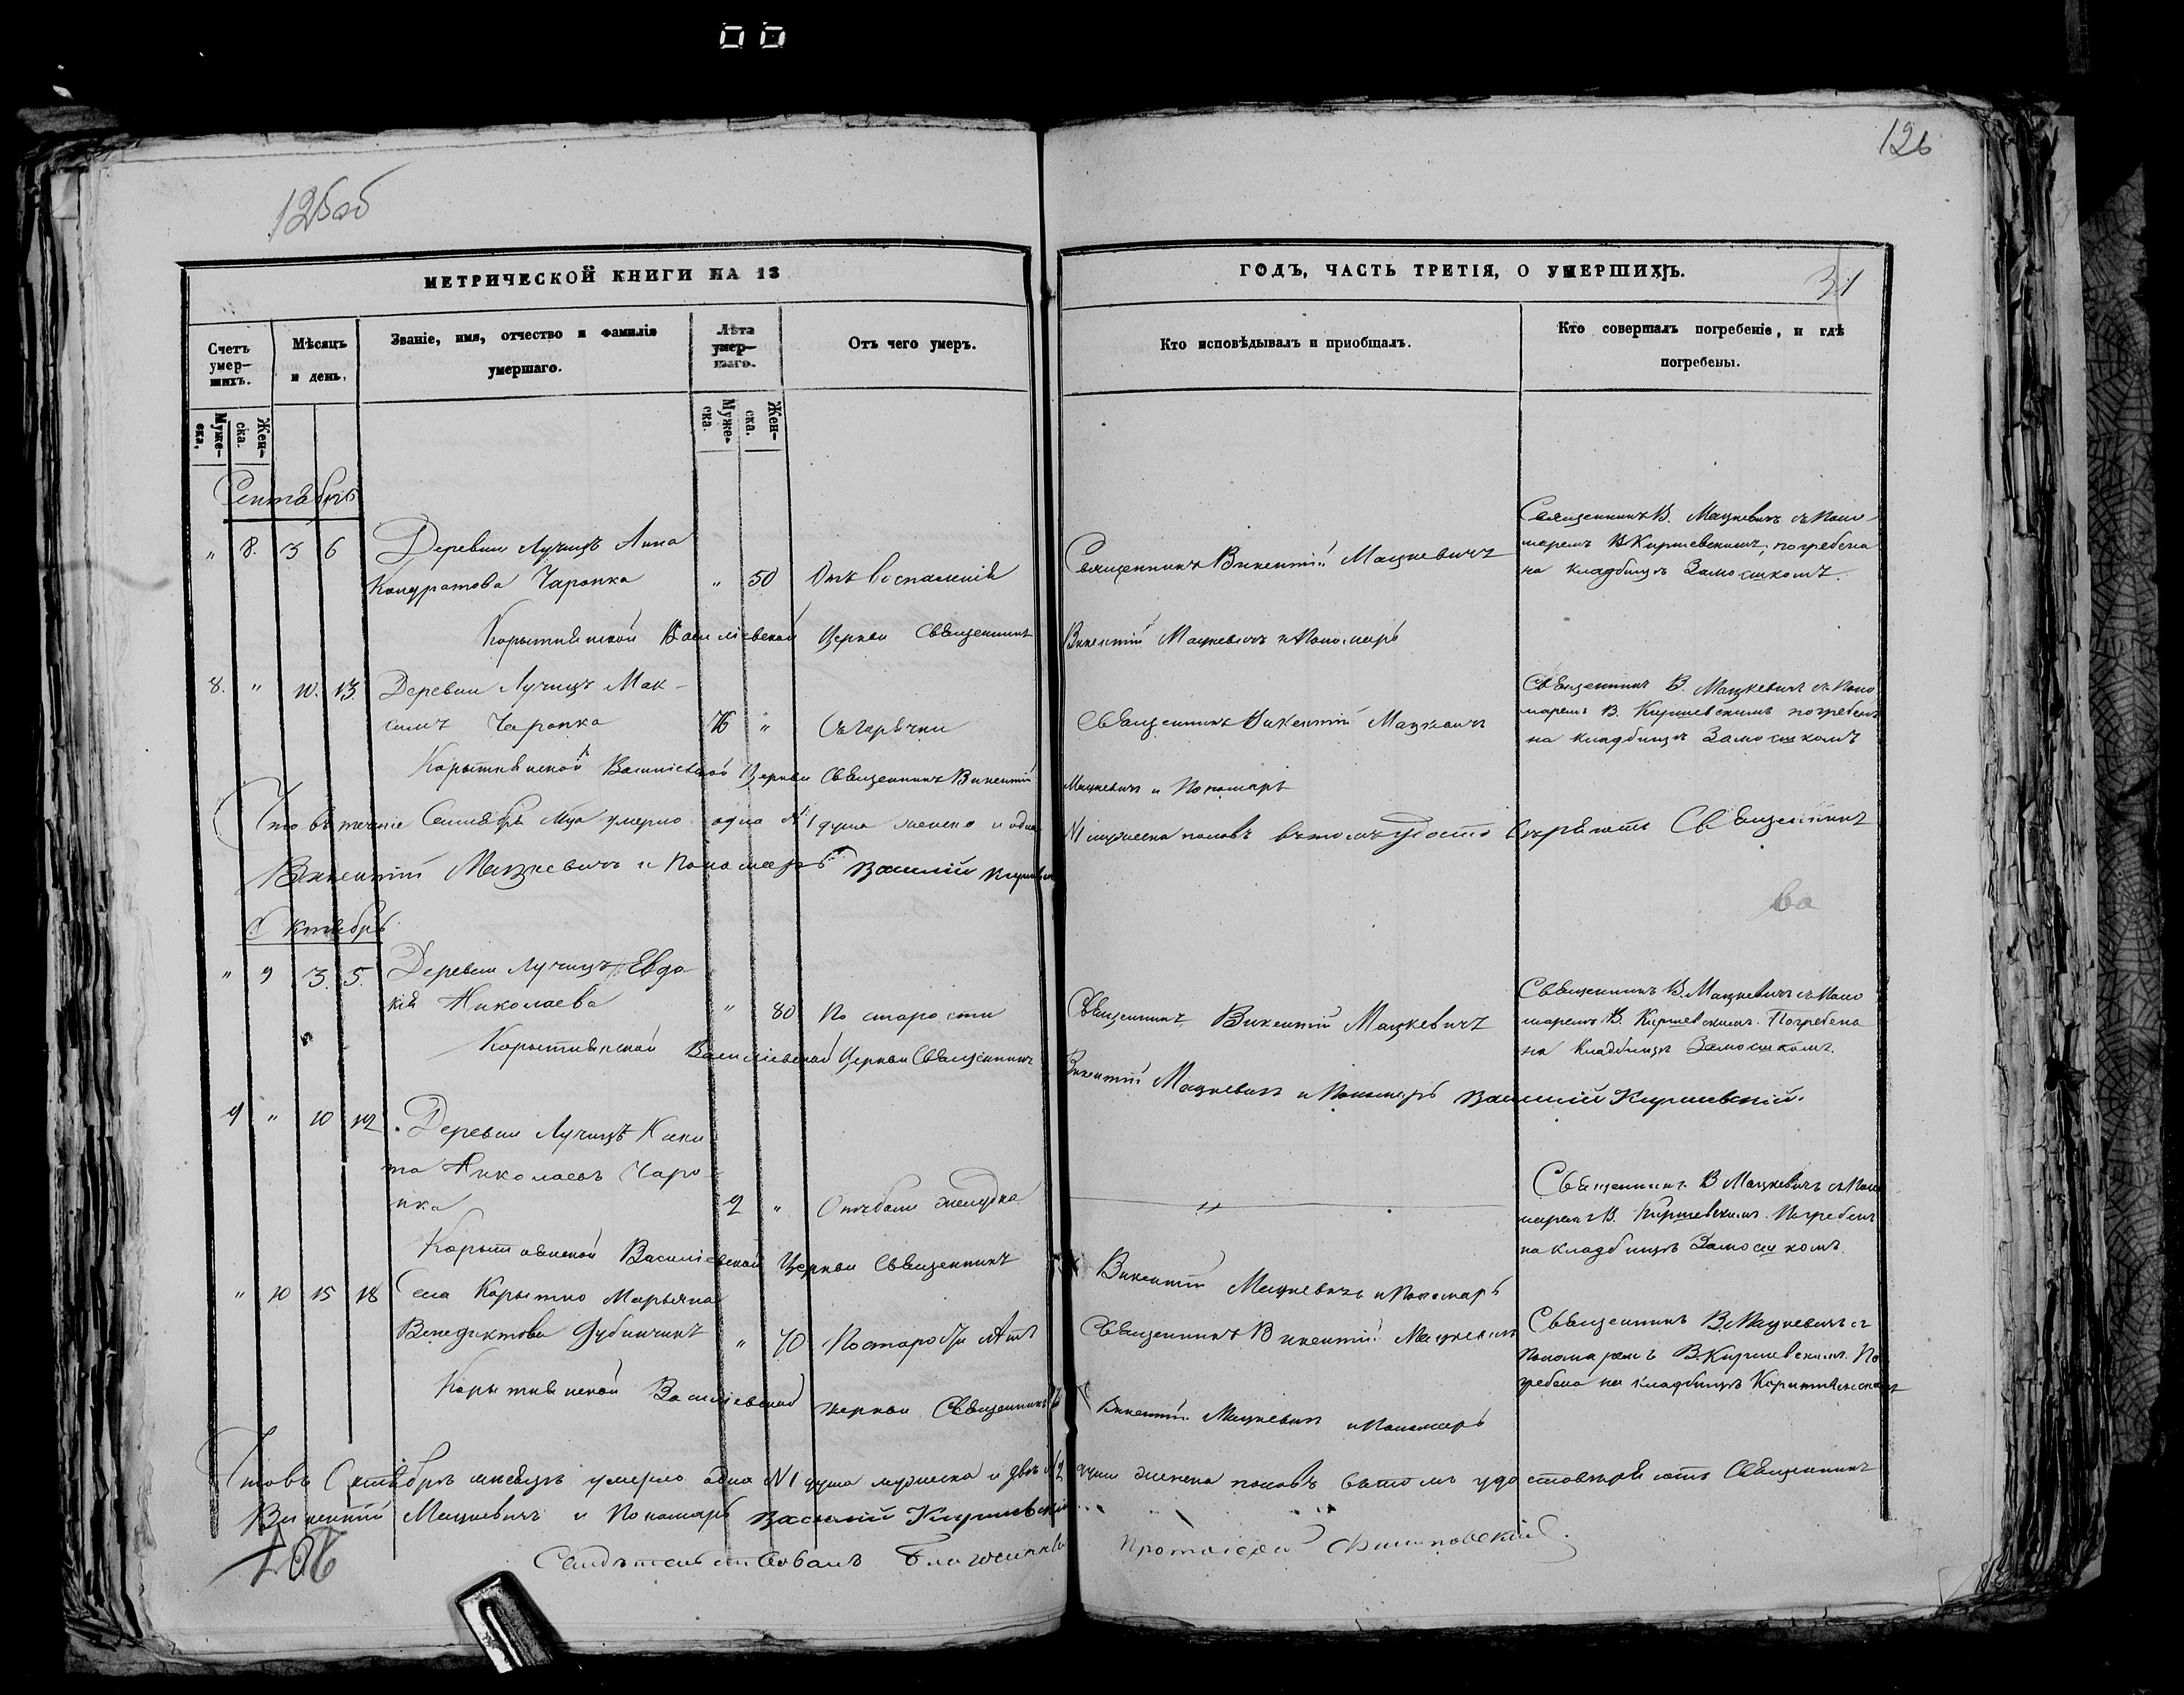 125об
126
МЕТРИЧЕСКОЙ КНИГИ НА 18
ГОДЪ, ЧАСТЬ ТРЕТІЯ, О УМЕРШИХЪ.
31
Счетъ умер-шихъ.
Мѣсяцъ и день.
Званіе, имя, отчество и фамилія умершаго.
Лѣта умер-шаго.
Отъ чего умеръ.
Кто исповѣдывалъ и приобщалъ.
Кто совершалъ погребеніе, и гдѣ погребены.
Муже-ска.
Жен-ска.
Муже-ска.
Жен-ска.
Сентябрь
" 8. 3 6 Деревни Лучицъ Анна
Кондратова Чаропка " 50 Отъ воспаленія
Священникъ Викентій Мацкевичъ
Священникъ В. Мацкевичъ съ Поно-
маремъ В Киршевскимъ, погребена
на кладбищѣ Замошскомъ.
Корытнянской Васпліевской Церкви Священникъ Викентій Мацкевичъ и Пономарь
8. " 10. 13. Деревни Лучицъ Мак-
симъ Чаропка 76 " Съ горячки
Священникъ Викентій Мацкевичъ
Священникъ В. Мацкевичъ съ Поно
маремъ В. Киршевскимъ погребенъ
на кладбищѣ Замошскомъ
Корытнянской Василіевской Церкви Священникъ Викентій Мацкевичъ и Пономарь
Что въ теченіе Сентября умерло одна №1 душа женска и одна №1 мужеска половъ въ томъ удостовѣряютъ Священникъ
Викентій Мацкевичъ и Пономарь Василій
во
Октябрь
" 9 3. 5. Деревни Лучицъ Евдо-
кія Николаева " 80 По старости
Священникъ Викентій Мацкевичъ
Священникъ В. Мацкевичъ съ Поно
маремъ В. Киршевскимъ. Погребена
на кладбищѣ Замошскомъ.
Корытнянской Василіевской Церкви Священникъ Викентій Мацкевичъ и Пономарь Василій Киршевскій.
9 " 10 12 Деревни Лучицъ Ники
та Николаевъ Чаро-
пка 2 " Отъ боли желудка
"
Священникъ В Мацкевичъ съ Поно
маремъ В. Киршевскимъ. Погребенъ
на кладбищѣ Замошскомъ.
Корытнянской Василіевской Церкви Священникъ Викентій Мацкевичъ и Пономарь
" 10 15 18 Села Корытно Марьяна
Венедиктова Дубинчикъ " 70 По старости лѣтъ
Священникъ Викентій Мацкевичъ
Священникъ В. Мацкевичъ съ
Пономаремъ В. Киршевскимъ. По
гребена на кладбищѣ Корытнянскомъ
Корытнянской Василіевской церкви Священникъ Викентій Мацкевичъ и Пономарь
Что въ Октябрѣ мѣсяцѣ умерло одна №1 душа мужеска и двѣ №2 души женска половъ въ томъ удостовѣряютъ Священникъ
Викентій Мацкевичъ и Пономарь Василій Киршевскій
Свидѣтельствовалъ Благочинный Протоіерей